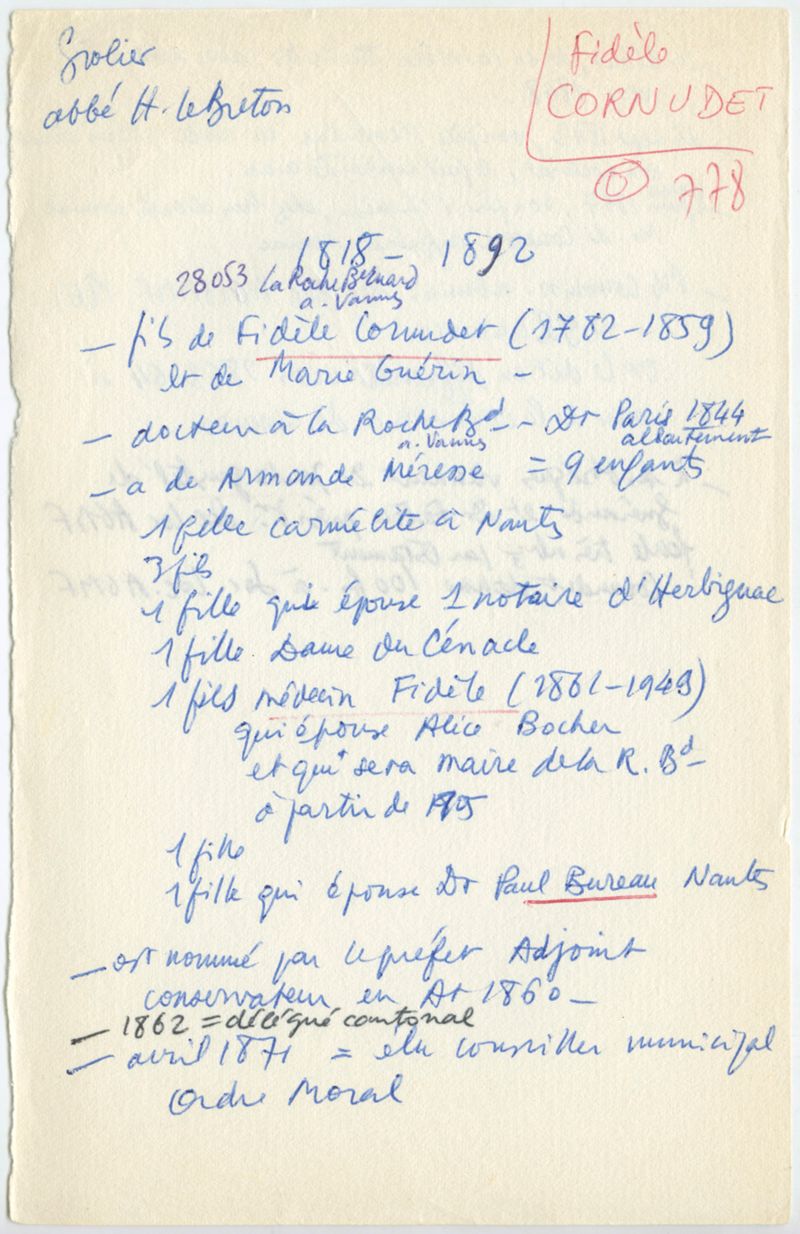 Grolier
abbé H. le Breton
Fidèle
CORNUDET
778
1818 – 1892
28053 La Roche Bernard
a. Vannes
– fils de Fidèle Cornudet (1782–1859)
et de Marie Guérin –
– docteur à la Roche Bd – Dr Paris 1844
a. Vannes
– a de Armande Méresse = 9 enfants
1 fille carmélite à Nantes
3 fils
1 fille qui épouse 1 notaire d'Herbignac
1 fille Dame du Cénacle
1 fils médecin Fidèle (1861–1949)
qui épouse Alice Bocher
et qui sera maire de la R. Bd –
à partir de
1 fille
1 fille qui épouse Dr Paul Bureau Nantes
– est nommé par le préfet Adjoint
conservateur en At 1860 –
– 1862 = délégué cantonal
– avril 1871 = élu conseiller municipal
Ordre Moral